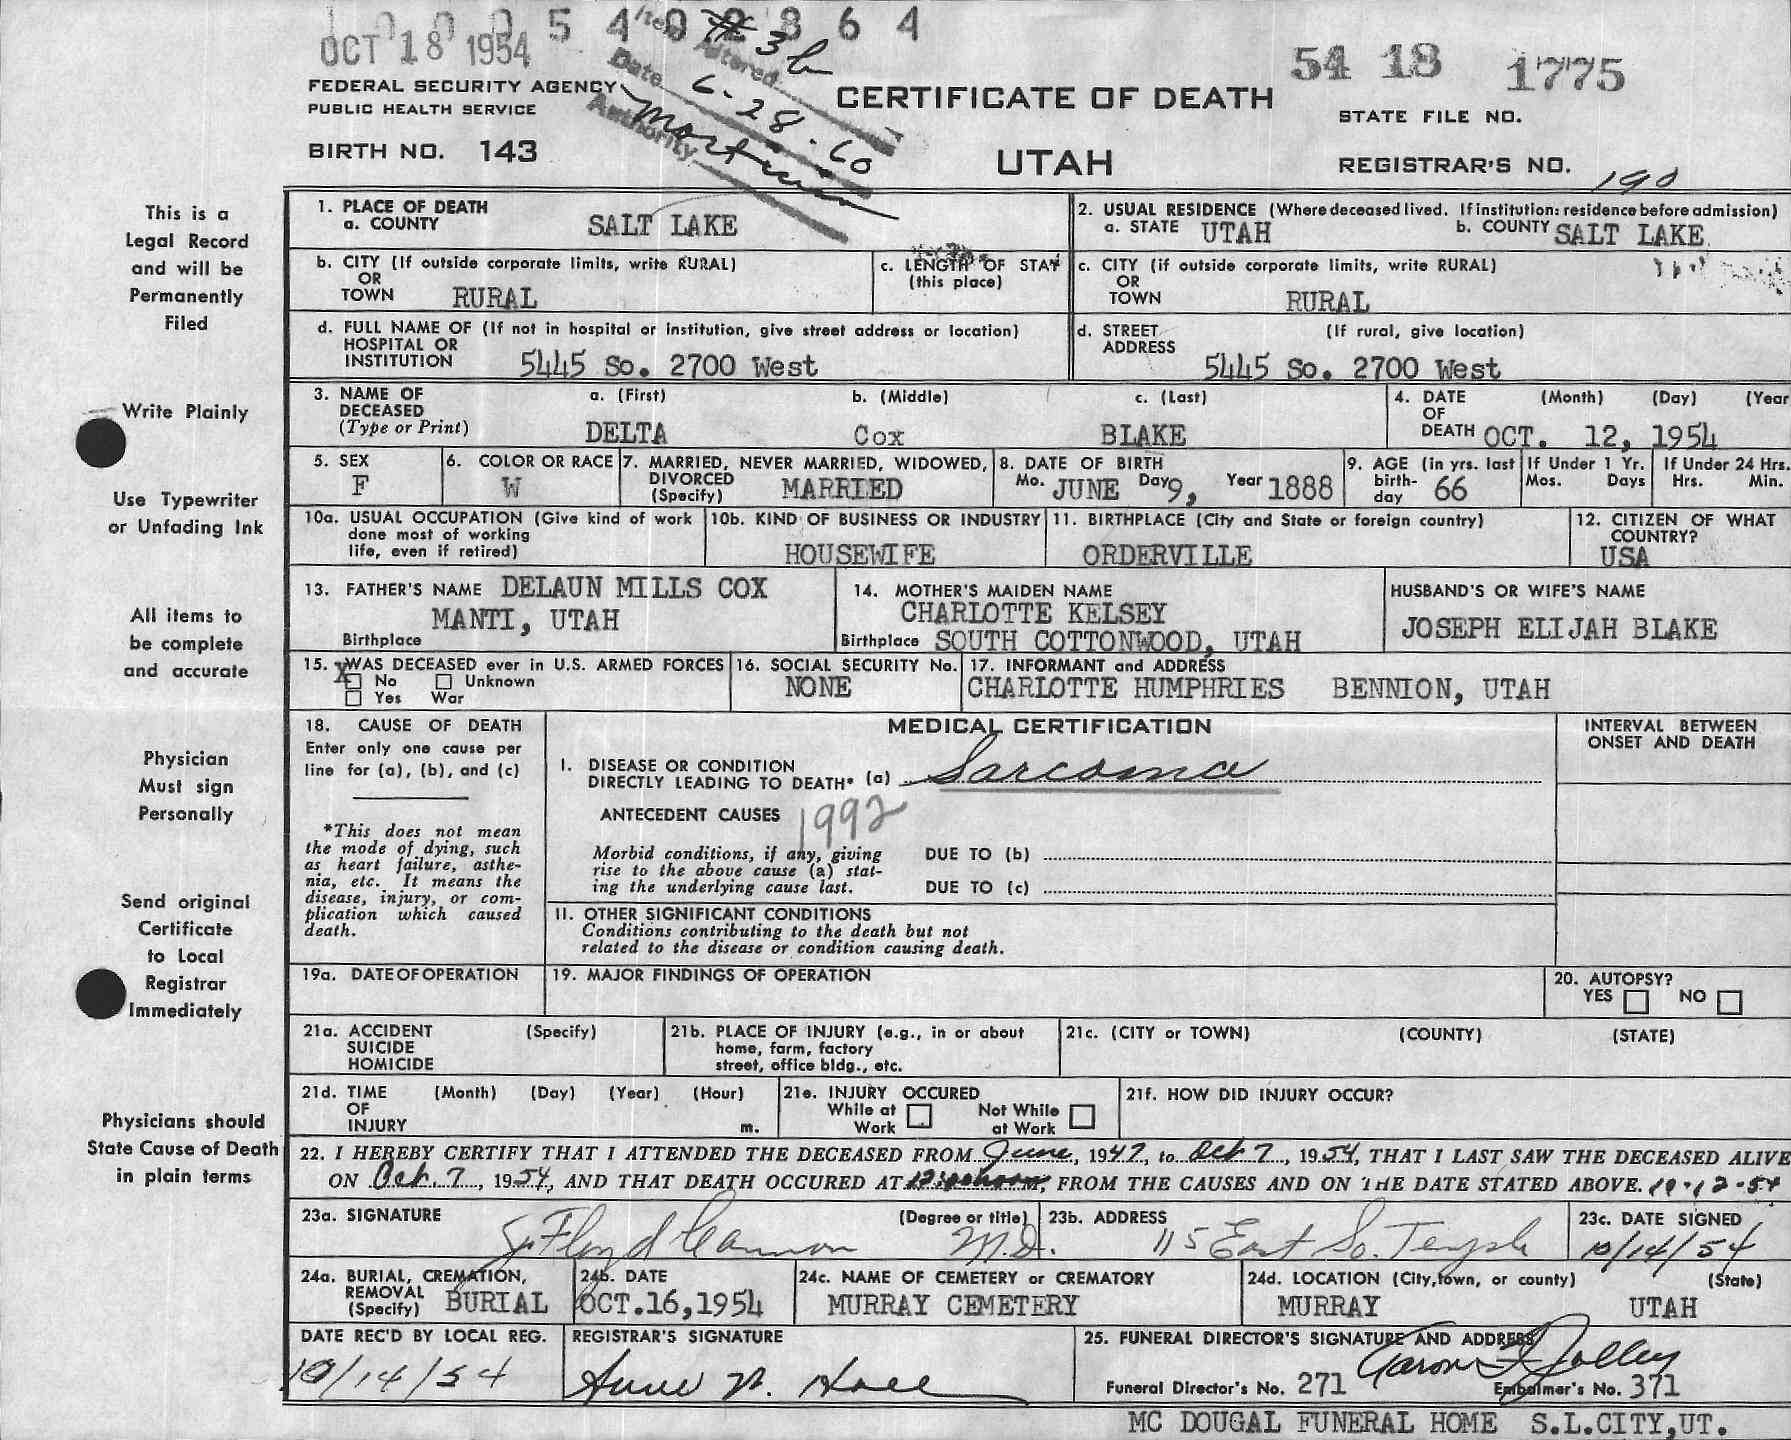 1 0 0 0 5 4 0 2 8 6 4
OCT 18 1954
Item #3b
Altered
Date 6-28-60
Authority
54 18 1775
FEDERAL SECURITY AGENCY
PUBLIC HEALTH SERVICE
CERTIFICATE OF DEATH
STATE FILE NO.
BIRTH NO. 143
UTAH
REGISTRAR'S NO. 190
This is a
Legal Record
and will be
Permanently
Filed
Write Plainly
Use Typewriter
or Unfading Ink
All items to
be complete
and accurate
Physician
Must sign
Personally
Send original
Certificate
to Local
Registrar
Immediately
Physicians should
State Cause of Death
in plain terms
1. PLACE OF DEATH
a. COUNTY SALT LAKE
2. USUAL RESIDENCE (Where deceased lived. If institution: residence before admission)
a. STATE UTAH b. COUNTY SALT LAKE
b. CITY (If outside corporate limits, write RURAL)
OR
TOWN RURAL
c. LENGTH OF STAY
(this place)
c. CITY (if outside corporate limits, write RURAL)
OR
TOWN RURAL
d. FULL NAME OF (If not in hospital or institution, give street address or location)
HOSPITAL OR
INSTITUTION 5445 So. 2700 West
d. STREET (If rural, give location)
ADDRESS
5445 So. 2700 West
3. NAME OF a. (First) b. (Middle) c. (Last)
DECEASED
(Type or Print) DELTA Cox BLAKE
4. DATE (Month) (Day) (Year
OF
DEATH OCT. 12, 1954
5. SEX
F
6. COLOR OR RACE
W
7. MARRIED, NEVER MARRIED, WIDOWED,
DIVORCED
(Specify) MARRIED
8. DATE OF BIRTH
Mo. JUNE Day 9, Year 1888
9. AGE (in yrs. last
birth-
day 66
If Under 1 Yr.
Mos. Days
If Under 24 Hrs.
Hrs. Min.
10a. USUAL OCCUPATION (Give kind of work
done most of working
life, even if retired)
10b. KIND OF BUSINESS OR INDUSTRY
HOUSEWIFE
11. BIRTHPLACE (City and State or foreign country)
ORDERVILLE
12. CITIZEN OF WHAT
COUNTRY?
USA
13. FATHER'S NAME DELAUN MILLS COX
MANTI, UTAH
Birthplace
14. MOTHER'S MAIDEN NAME
CHARLOTTE KELSEY
Birthplace SOUTH COTTONWOOD, UTAH
HUSBAND'S OR WIFE'S NAME
JOSEPH ELIJAH BLAKE
15. WAS DECEASED ever in U.S. ARMED FORCES
X No Unknown
Yes War
16. SOCIAL SECURITY No.
NONE
17. INFORMANT and ADDRESS
CHARLOTTE HUMPHRIES BENNION, UTAH
18. CAUSE OF DEATH
Enter only one cause per
line for (a), (b), and (c)
*This does not mean
the mode of dying, such
as heart failure, asthe-
nia, etc. It means the
disease, injury, or com-
plication which caused
death.
MEDICAL CERTIFICATION
INTERVAL BETWEEN
ONSET AND DEATH
I. DISEASE OR CONDITION
DIRECTLY LEADING TO DEATH* (a) Sarcoma
ANTECEDENT CAUSES 1992
Morbid conditions, if any, giving
rise to the above cause (a) stat-
ing the underlying cause last.
DUE TO (b)
DUE TO (c)
II. OTHER SIGNIFICANT CONDITIONS
Conditions contributing to the death but not
related to the disease or condition causing death.
19a. DATE OF OPERATION
19. MAJOR FINDINGS OF OPERATION
20. AUTOPSY?
YES NO
21a. ACCIDENT (Specify)
SUICIDE
HOMICIDE
21b. PLACE OF INJURY (e.g., in or about
home, farm, factory
street, office bldg., etc.
21c. (CITY or TOWN) (COUNTY) (STATE)
21d. TIME (Month) (Day) (Year) (Hour)
OF
INJURY m.
21e. INJURY OCCURED
While at Not While
Work at Work
21f. HOW DID INJURY OCCUR?
22. I HEREBY CERTIFY THAT I ATTENDED THE DECEASED FROM June, 1947, to Oct 7, 1954, THAT I LAST SAW THE DECEASED ALIVE
ON Oct. 7, 1954, AND THAT DEATH OCCURED AT FROM THE CAUSES AND ON THE DATE STATED ABOVE. 10-12-54
23a. SIGNATURE (Degree or title)
J. Floyd Cannon M.D.
23b. ADDRESS
115 East So. Temple
23c. DATE SIGNED
10/14/54
24a. BURIAL, CREMATION,
REMOVAL
(Specify) BURIAL
24b. DATE
OCT.16,1954
24c. NAME OF CEMETERY or CREMATORY
MURRAY CEMETERY
24d. LOCATION (City, town, or county) (State)
MURRAY UTAH
DATE REC'D BY LOCAL REG.
10/14/54
REGISTRAR'S SIGNATURE
25. FUNERAL DIRECTOR'S SIGNATURE AND ADDRESS
Aaron F Jolley
Funeral Director's No. 271 Embalmer's No. 371
MC DOUGAL FUNERAL HOME S.L.CITY,UT.